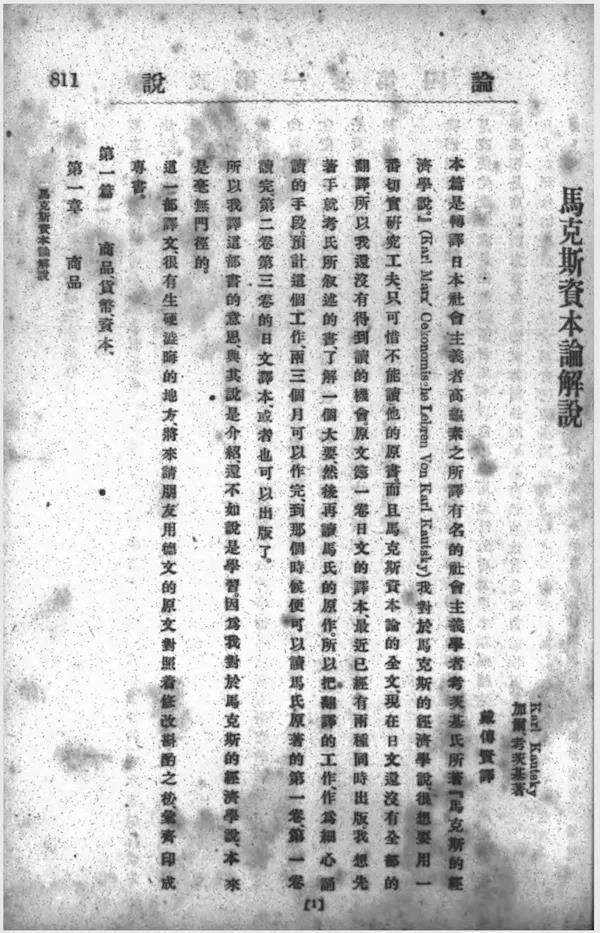 論說
811
馬克斯資本論解說
Karl Kautsky
加爾考茨基著
戴傳賢譯
本篇是轉譯日本社會主義者高畠素之所譯有名的社會主義學者考茨基氏所著『馬克斯的經
濟學說』(Karl Marx' Oekonomische Lehren Von Karl Kautsky)我對於馬克斯的經濟學說，很想要用一
番切實研究工夫，只可惜不能讀他的原書，而且馬克斯資本論的全文現在日文還沒有全部的
翻譯，所以我還沒有得到讀的機會。原文第一卷日文的譯本，最近已經有兩種同時出版，我想先
著手就考氏所叙述的書，了解一個大要，然後再讀馬氏的原作。所以把翻譯的工作，作為細心誦
讀的手段。預計這個工作，兩三個月可以作完，到那個時候，便可以讀馬氏原著的第一卷，第一卷
讀完，第二卷第三卷的日文譯本，或者也可以出版了。
所以我譯這部書的意思，與其說是介紹，還不如說是學習。因為我對於馬克斯的經濟學說，本來
是毫無門徑的。
這一部譯文很有生硬澁晦的地方，將來請朋友用德文的原文對照着修改斟酌之後，彙齊印成
專書。
第一篇　商品，貨幣，資本，
第一章　商品
馬克斯資本論解說
[1]